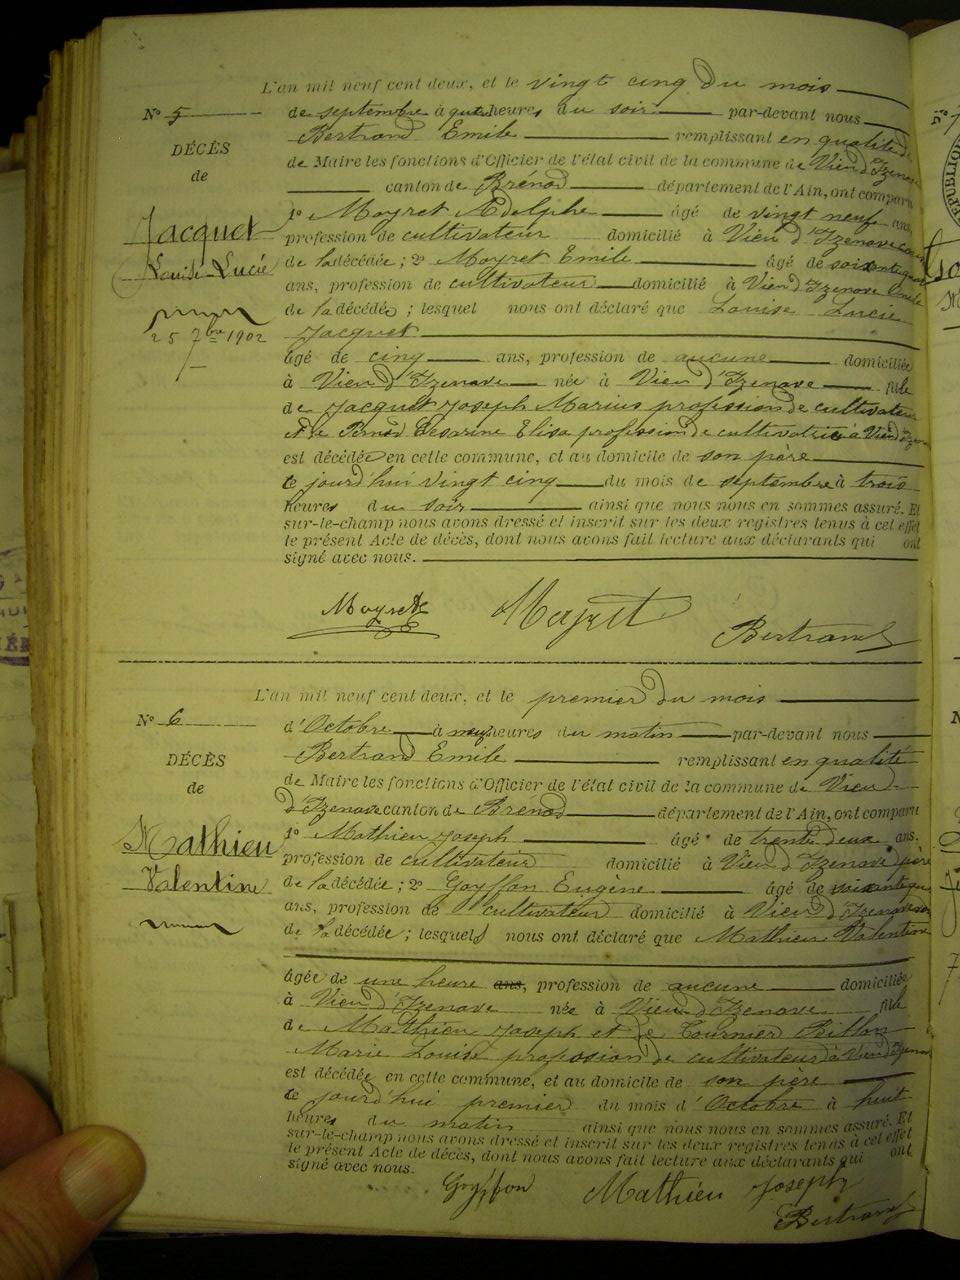 L'an mil neuf cent deux, et le vingt cinq du mois
N° 5
de septembre à quatre heures du soir par-devant nous
Bertrand Emile remplissant en qualité
DÉCÈS
de Maire les fonctions d'Officier de l'état civil de la commune de Vieu d'Izenave
de
canton de Brénod département de l'Ain, ont comparu
1° Moyret Adolphe âgé de vingt neuf ans,
Jacquet
profession de cultivateur domicilié à Vieu d'Izenave
Louise-Lucie
de la décédée ; 2° Moyret Emile âgé de soixante
ans, profession de cultivateur domicilié à Vieu d'Izenave
de la décédée ; lesquel nous ont déclaré que Louise Lucie
25 7bre 1902
Jacquet
âgé de cinq ans, profession de aucune domiciliée
à Vieu d'Izenave née à Vieu d'Izenave fille
de Jacquet Joseph Marius profession de cultivateur
et de Cesarine Elisa profession de cultivatrice à Vieu d'Izenave
est décédée en cette commune, et au domicile de son père
ce jourd'hui vingt cinq du mois de septembre à trois
heures du soir ainsi que nous nous en sommes assuré. Et
sur-le-champ nous avons dressé et inscrit sur les deux registres tenus à cet effet
le présent Acte de décès, dont nous avons fait lecture aux déclarants qui ont
signé avec nous.
Moyret Moyret Bertrand
L'an mil neuf cent deux, et le premier du mois
N° 6
d'Octobre à neuf heures du matin par-devant nous
Bertrand Emile remplissant en qualité
DÉCÈS
de Maire les fonctions d'Officier de l'état civil de la commune de Vieu
de
d'Izenave canton de Brénod département de l'Ain, ont comparu
1° Mathieu Joseph âgé de trente deux ans.
Mathieu
profession de cultivateur domicilié à Vieu d'Izenave père
Valentine
de la décédée ; 2° Goyffon Eugène âgé de soixante
ans, profession de cultivateur domicilié à Vieu d'Izenave
de la décédée ; lesquels nous ont déclaré que Mathieu Valentine
âgée de une heure ans, profession de aucune domiciliée
à Vieu d'Izenave née à Vieu d'Izenave fille
de Mathieu Joseph et de Tournier Billon
Marie Louise profession de cultivateurs à Vieu d'Izenave
est décédée en cette commune, et au domicile de son père
ce jourd'hui premier du mois d'Octobre à huit
heures du matin ainsi que nous nous en sommes assuré. Et
sur-le-champ nous avons dressé et inscrit sur les deux registres tenus à cet effet
le présent Acte de décès, dont nous avons fait lecture aux déclarants qui ont
signé avec nous.
Goyffon Mathieu Joseph
Bertrand